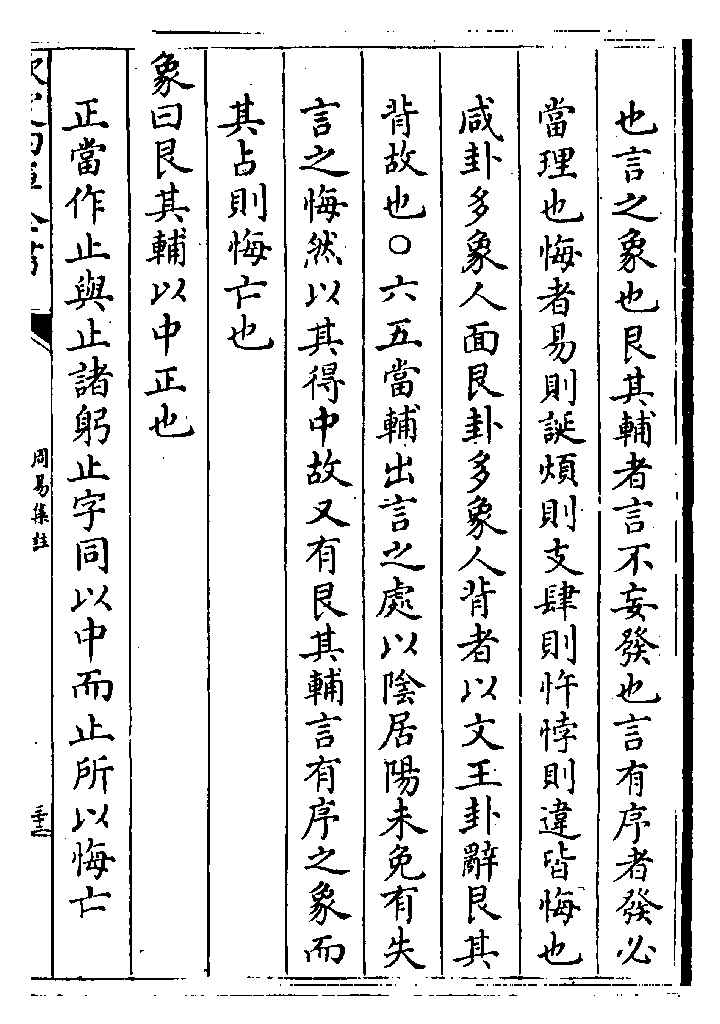 也言之象也艮其輔者言不妄發也言有序者發必
當理也悔者易則誕煩則支肆則忤悖則違皆悔也
咸卦多象人面艮卦多象人背者以文王卦辭艮其
背故也○六五當輔出言之處以陰居陽未免有失
言之悔然以其得中故又有艮其輔言有序之象而
其占則悔亡也
象曰艮其輔以中正也
正當作止與止諸躬止字同以中而止所以悔亡
周易集註